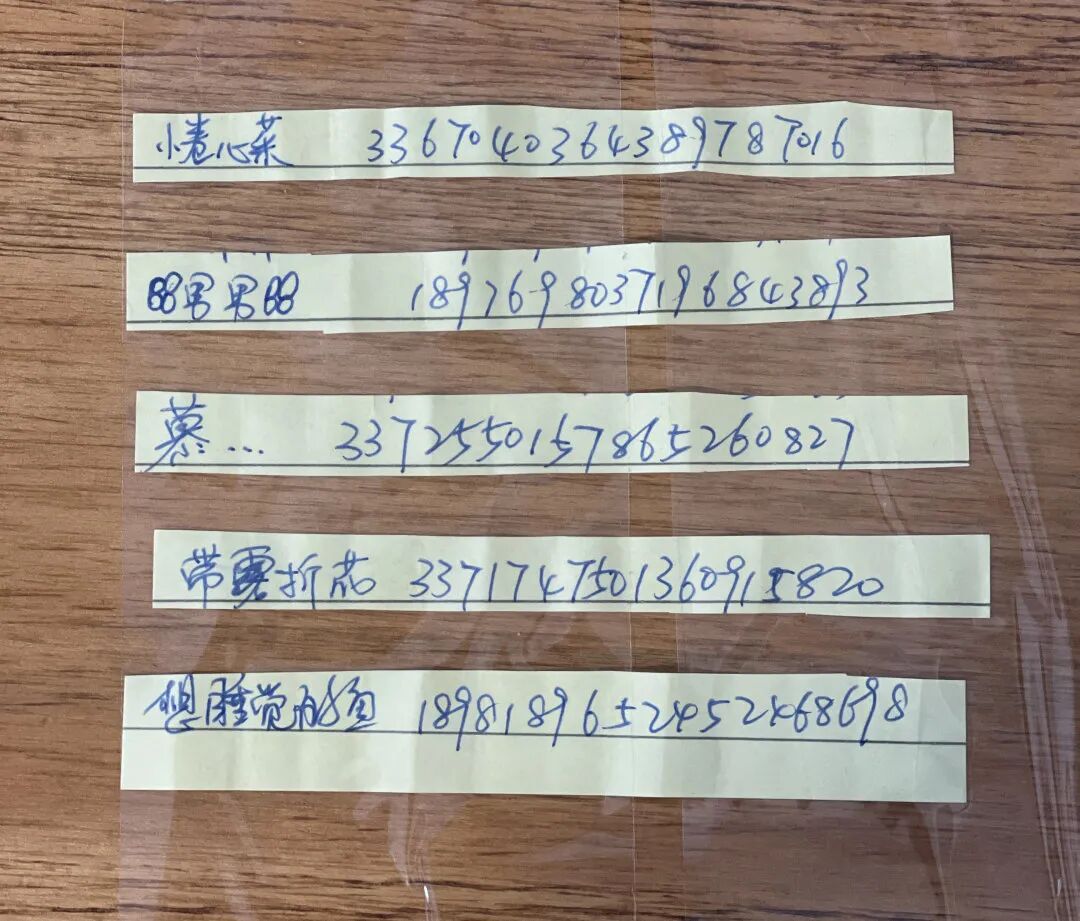 小卷心菜 3367040364389787016
88男男88 1897698037196843893
慕... 3372550157865260827
带露折花 3371747501360915820
想睡觉的鱼 1898189652452468698